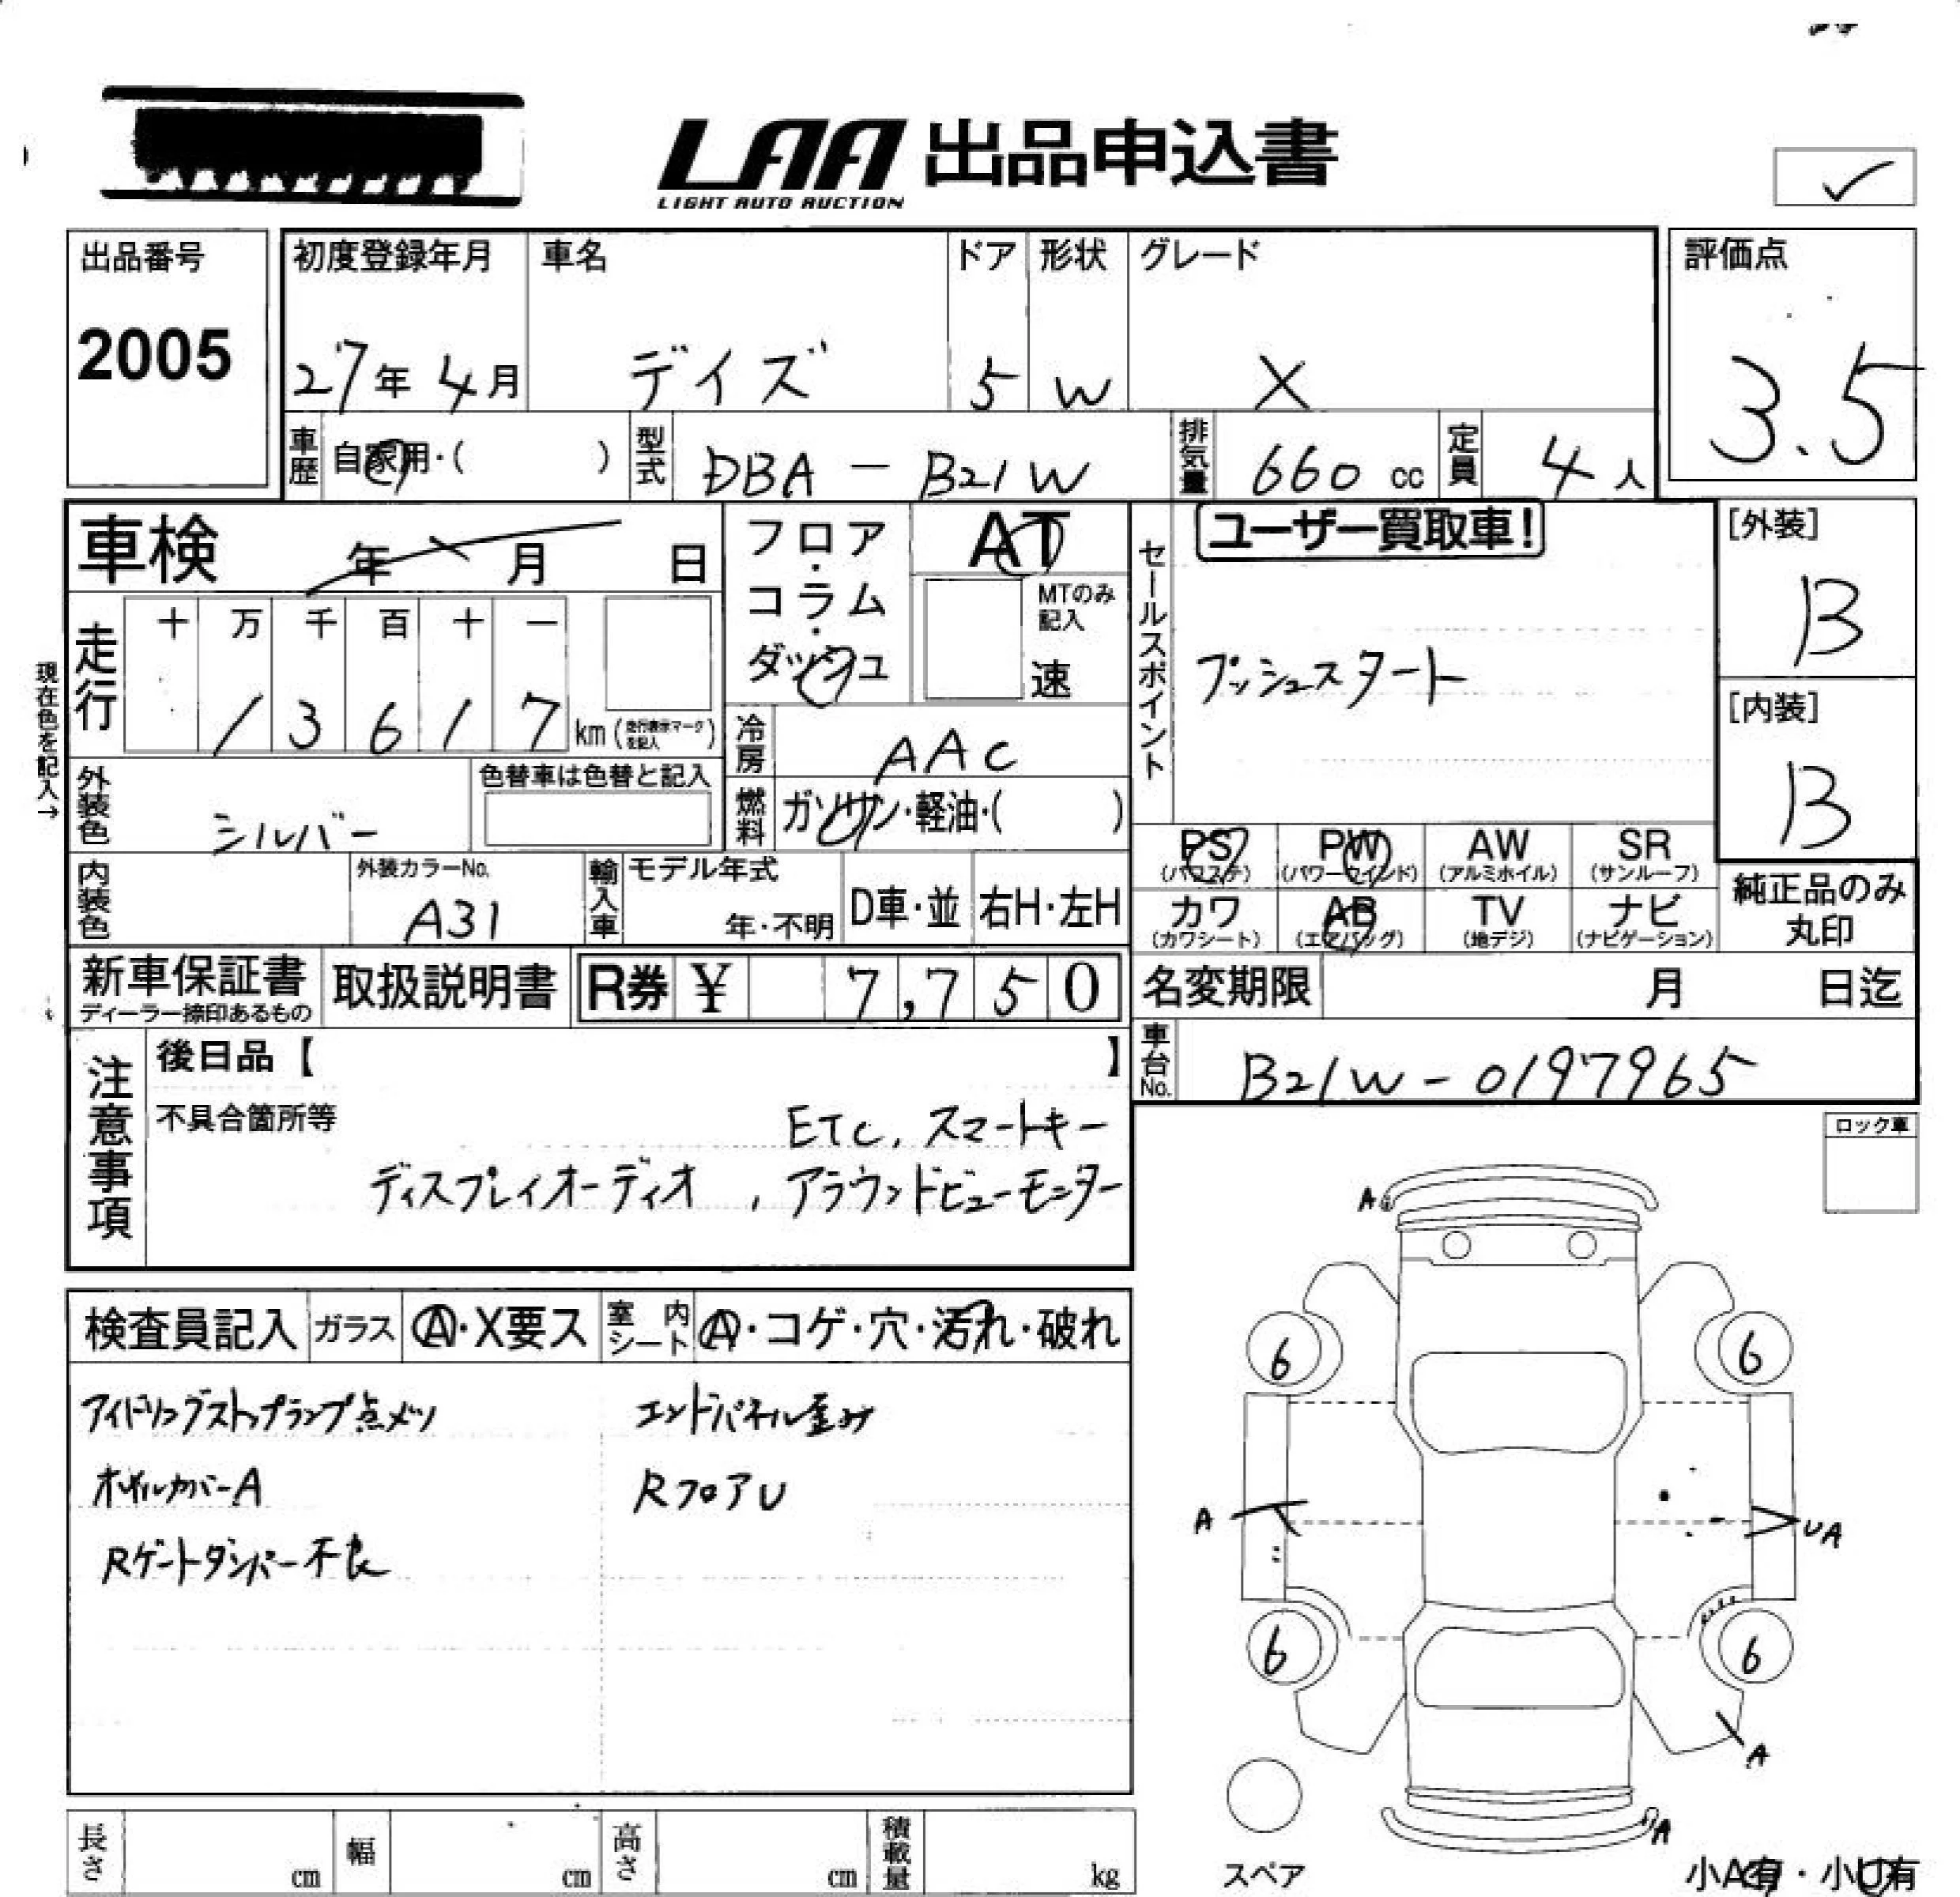 LAA 出品申込書
LIGHT AUTO AUCTION
出品番号
2005
初度登録年月
27年 4月
車名
デイズ
ドア
5
形状
W
グレード
X
評価点
3.5
車歴 自家用・( )
型式 DBA - B21W
排気量 660 cc
定員 4人
車検 年 月 日
フロア・コラム・ダッシュ
AT
MTのみ記入
速
セールスポイント
ユーザー買取車!
プッシュスタート
[外装]
B
[内装]
B
現在色を記入→
走行
十 万 千 百 十 一
1 3 6 1 7 km (走行表示マークを記入)
冷房 AAC
外装色 シルバー
色替車は色替と記入
燃料 ガソリン・軽油・( )
PS (パワステ)
PW (パワーウインド)
AW (アルミホイル)
SR (サンルーフ)
カワ (カワシート)
AB (エアバッグ)
TV (地デジ)
ナビ (ナビゲーション)
純正品のみ丸印
内装色
外装カラーNo.
A31
輸入車
モデル年式
年・不明
D車・並
右H・左H
新車保証書
ディーラー捺印あるもの
取扱説明書
R券 ¥ 7,750
名変期限 月 日迄
車台No. B21W-0197965
注意事項
後日品【 】
不具合箇所等
ETC, スマートキー
ディスプレイオーディオ , アラウンドビューモニター
ロック車
検査員記入
ガラス
A・X要ス
室内シート
A・コゲ・穴・汚れ・破れ
アイドリングストップランプ点メツ
エンドパネル歪み
オイルカバーA
RフロアU
Rゲートダンパー不良
A
6 6
A
UA
6 6
A
A
スペア
小A有・小U有
長さ cm
幅 cm
高さ cm
積載量 kg